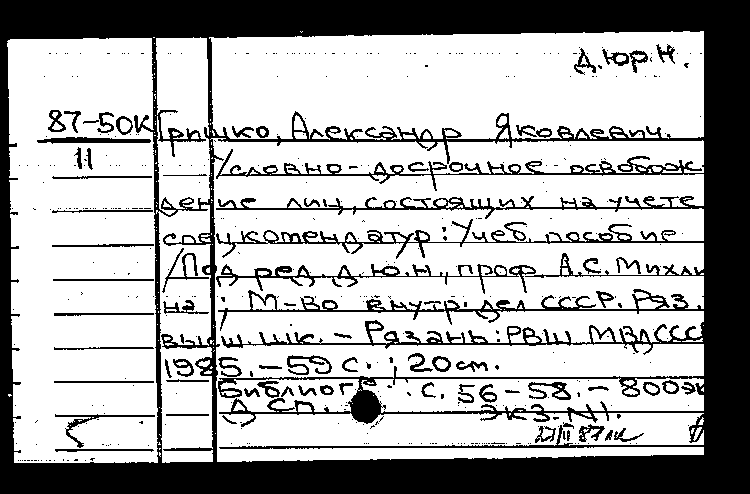 Д.юр.н.
87-50К Гришко, Александр Яковлевич.
11 Условно-досрочное освобож-
дение лиц, состоящих на учете
спецкомендатур: Учеб. пособие
/Под ред. д.ю.н., проф. А.С. Михли
на; М-во внутр. дел СССР. Ряз.
высш. шк. - Рязань: РВШ МВД СССР
1985. - 59 с.; 20 см.
Библиогр.: с. 56-58. - 800 эк
ДСП. экз. N1.